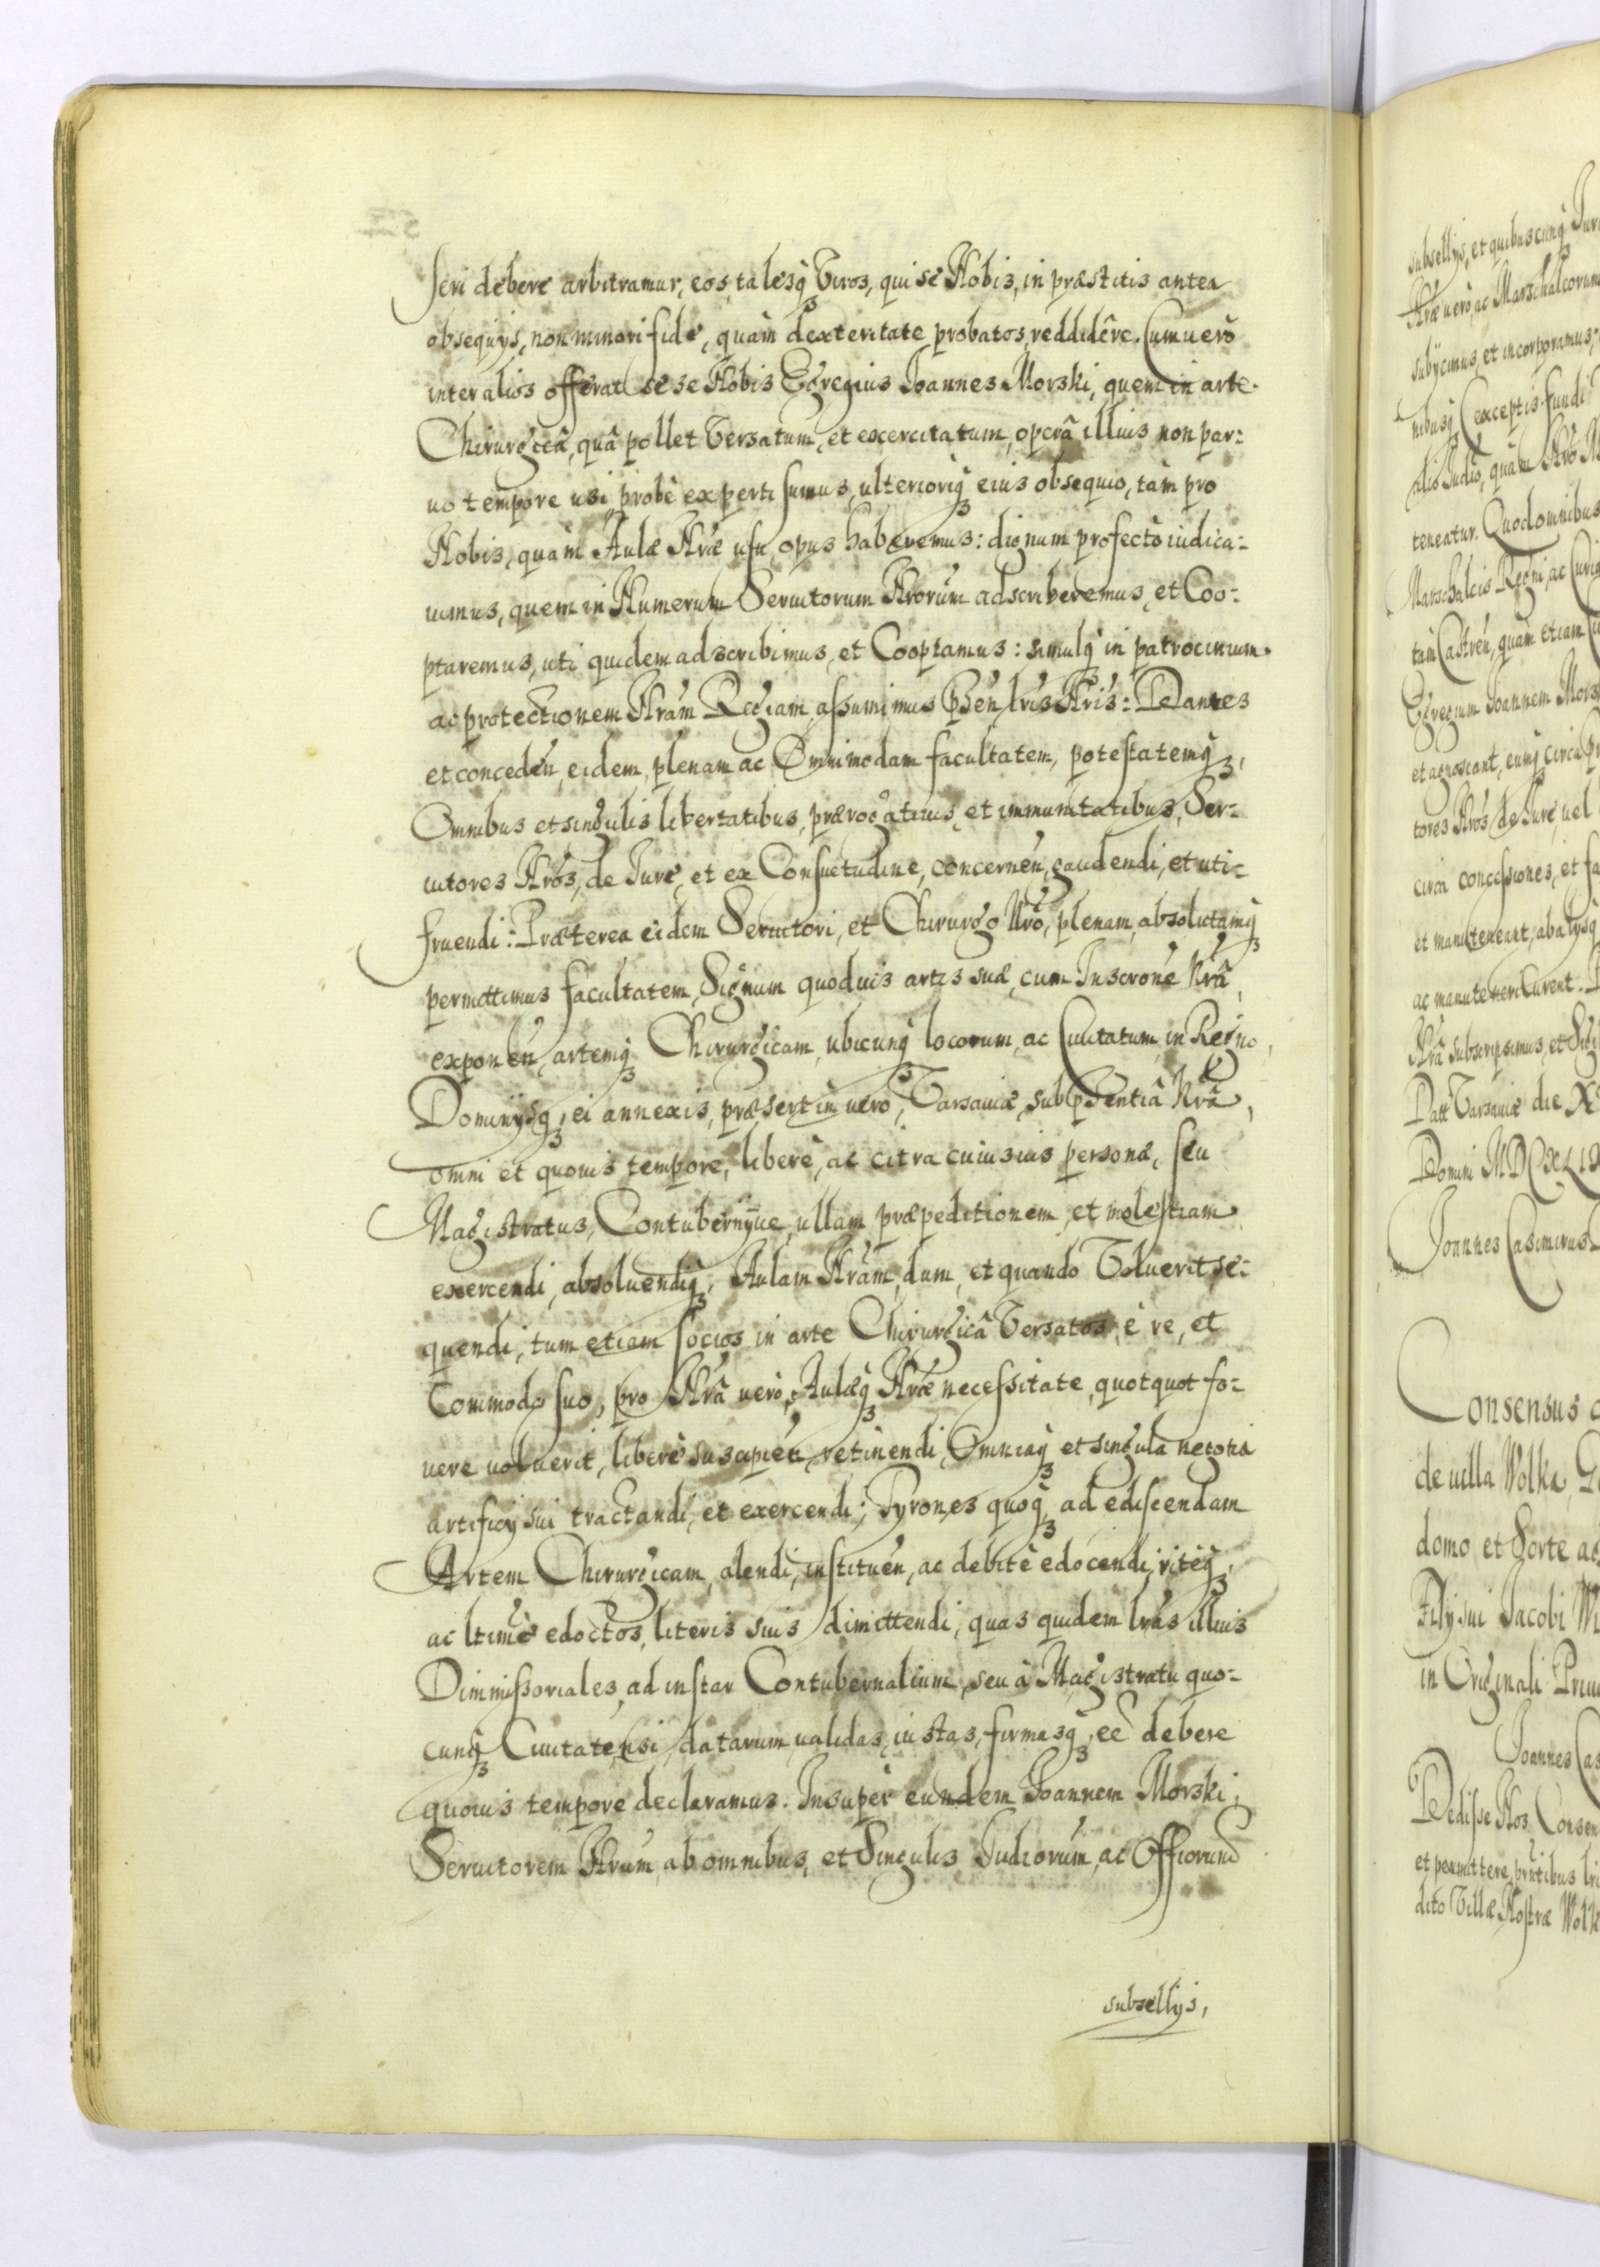 seri debere arbitramur, eos, talesq́ꝫ Viros, qui se Nobis, in præstitis antea
obsequijs, non minori fide, quàm dexteritate probatos, reddidêre. Cum uerò
inter alios offerat se se Nobis Egregius Ioannes Morski, quem in arte
Chirurgicâ, quâ pollet Versatum, et exercitatum, operâ illius non par:
uo tempore usi probè experti sumus, ulterioriq́ꝫ eius obsequio, tàm pro
Nobis, quàm Aulæ Nræ usu, opus haberemus: dignum profectò iudica:
uimus, quem in Numerum Seruitorum Nrorum adscriberemus, et Coo:
ptaremus, uti quidem adscribimus, et Cooptamus: simulq́ꝫ in patrocinium
ac protectionem Nram Regiam assumimus Pñen lris Nris: Dantes
et conceden̄, eidem, plenam ac Omnimodam facultatem, potestatemq́ꝫ,
Omnibus et singulis libertatibus, prærogatiuis, et immunitatibus, Ser:
uitores Nros, de Jure, et ex Consuetudine, concernen̄, gaudendi, et uti:
fruendi: Præterea eidem Seruitori, et Chirurgo Nrõ, plenam, absolutamq́ꝫ
permittimus facultatem, Signum quoduis artis suæ, cum Inscrone Nrâ,
exponen̄, artemq́ꝫ Chirurgicam, ubicunq́ꝫ locorum, ac Ciuitatum, in Regno,
Dominijsq́ꝫ, ei annexis, præsertìm uerò, Varsauiæ, sub Pñentiâ Nrâ,
omni et quouis tempore, liberè, ac citra cuiusuis personæ, seu
Magistratus, Contubernijue, ullam præpeditionem, et molestiam
exercendi, absoluendiq́ꝫ, Aulam Nram, dum, et quando Voluerit, se:
quendi, tum etiam socios in arte Chirurgicâ Versatos, è re, et
Commodo suo, pro Nrâ uerò, Aulæq́ꝫ Nræ necessitate, quotquot fo:
uere uoluerit, liberè suscipien̄, retinendi, Omniaq́ꝫ et singula negotia
artificij sui tractandi, et exercendi; Tyrones quoq́ꝫ, ad ediscendam
Artem Chirurgicam, alendi, instituen̄, ac debitè edocendi, ritèq́ꝫ,
ac ltimè edoctos, literis suis dimittendi, quas quidem lras illius
Dimmissoriales, ad instar Contubernalium, seu à Magistratu quo:
cunq́ꝫ Ciuitatensi, datarum, ualidas, iustas, firmasq́ꝫ, eẽ debere
quouis tempore declaramus. Insuper eundem Ioannem Morski,
Seruitorem Nrum, ab omnibus, et Singulis Judiorum, ac Offiorum
subsellijs,
subsellijs, et quibuscunq́ꝫ
Nræ uerò, ac Marschalcorum
subijcimus, et incorporamus;
nibusq́ꝫ (exceptis fundi
alio Iudio, quàm Nro
teneatur. Quod omnibus
Marschalcis Regni, ac
tàm Castren̄, quàm etiam
Egregium Ioannem
et agnoscant, eumq́ꝫ circa
tores Nros de Jure, uel
circa concessiones, et
et manuteneant, ab alijsq́ꝫ
ac manuteneri curent.
Nrâ subscripsimus, et
Datt Varsauiæ die
Domini
Joannes Casimirus
Consensus
de uilla Wolka,
domo et Sorte
Filij sui Jacobi
in Originali
Joannes
Dedisse Nos Consen
et permittere,
dito Villæ Nostræ